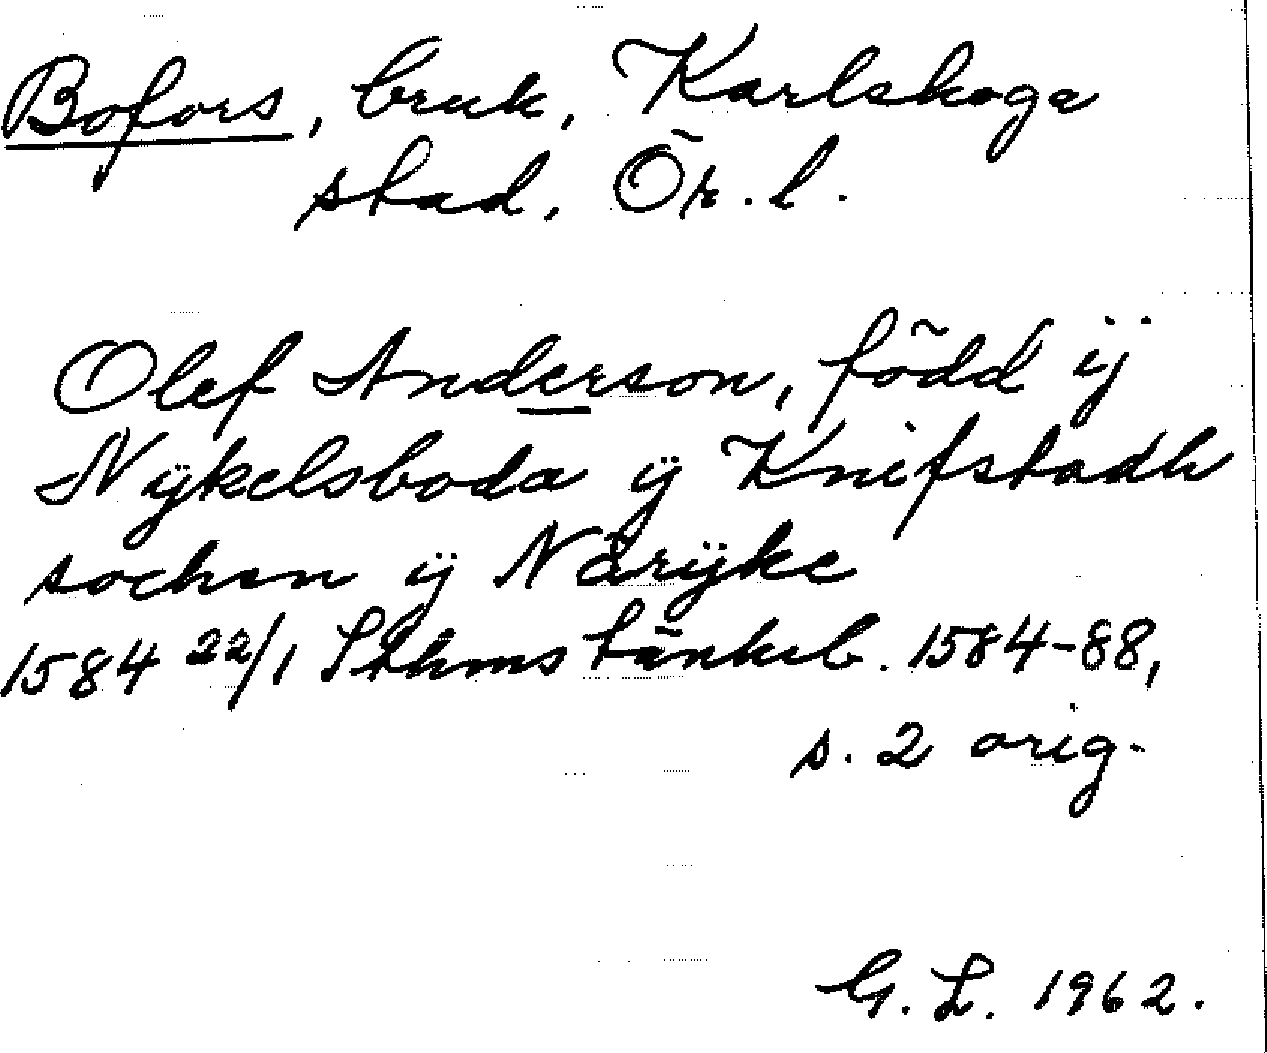 Bofors, bruk, Karlskoga
stad, Ör. l.
Olef Anderson, född ÿ
Nÿkelsboda ÿ Knifstadh
sochen ÿ Närÿke
1584 22/1 Sthms tänkeb. 1584-88,
s. 2 orig.
G. L. 1962.